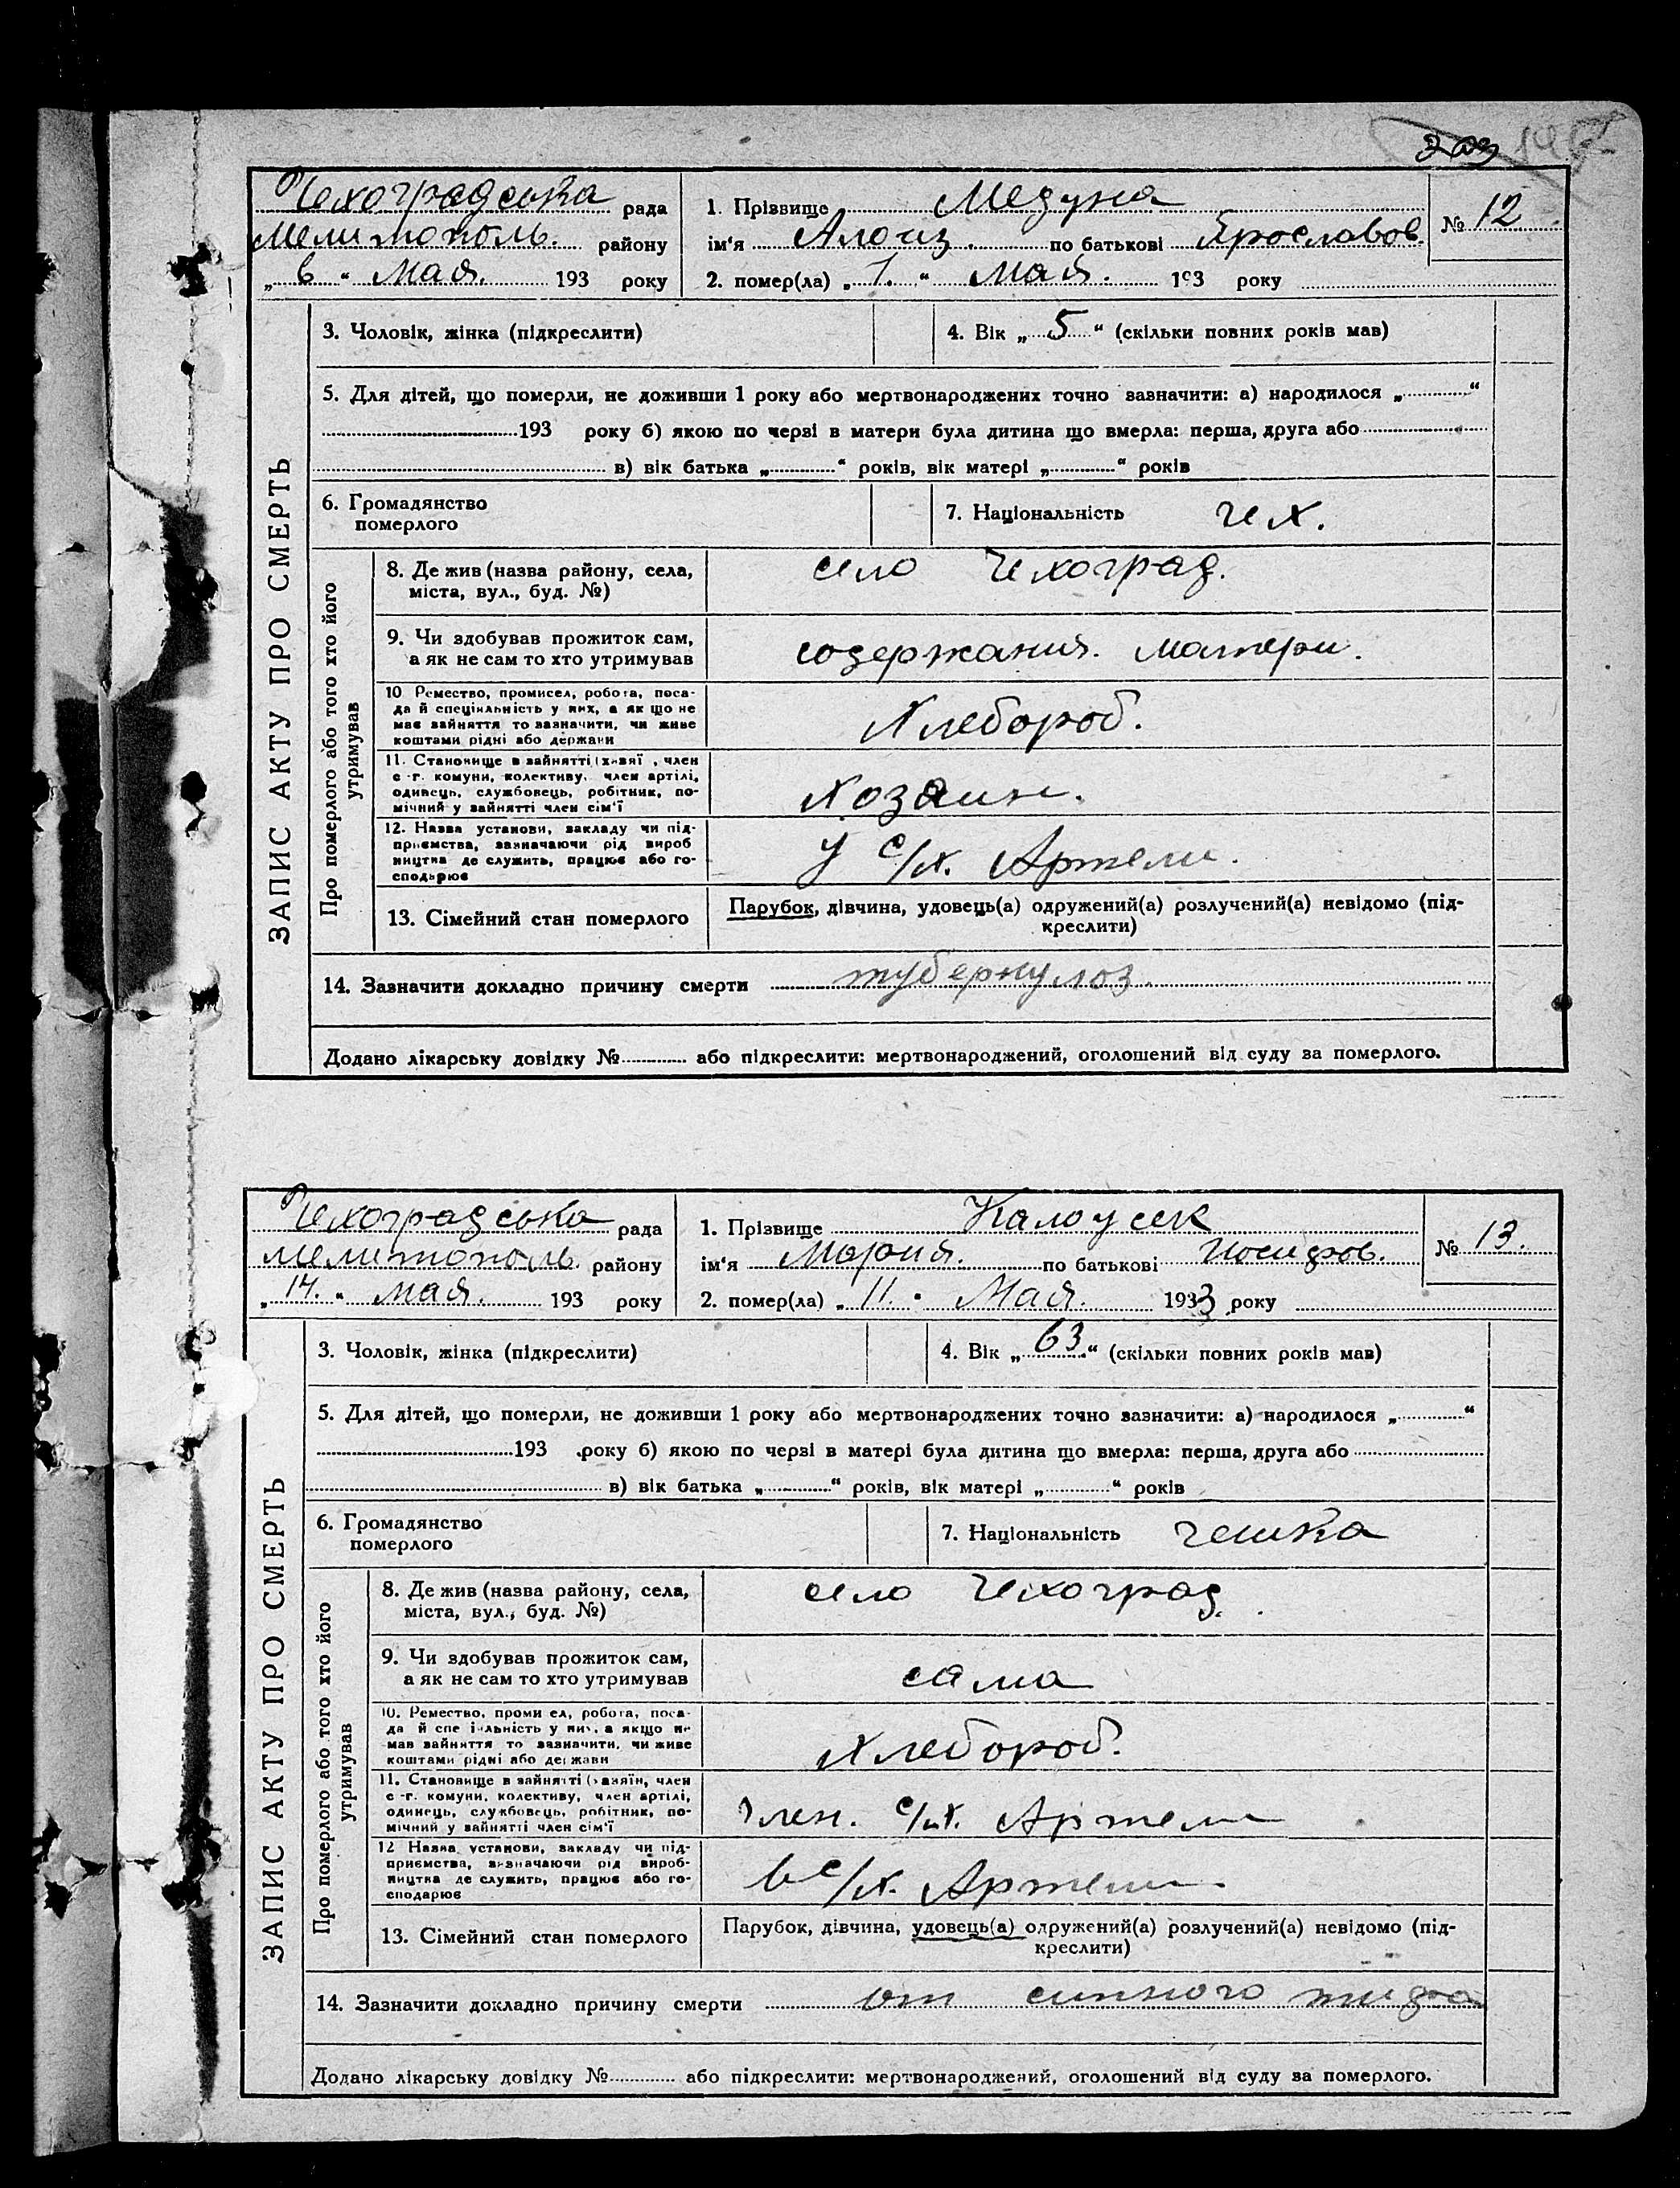 203
Чехоградська рада
Мелитополь. району
„ 6 “ Мая. 193 року
1. Прізвище Медуна
ім'я Алоиз. по батькові Ярославов.
2. помер(ла) „ 1. “ Мая. 193 року
№ 12
ЗАПИС АКТУ ПРО СМЕРТЬ
3. Чоловік, жінка (підкреслити)
4. Вік „ 5 “ (скільки повних років мав)
5. Для дітей, що померли, не доживши 1 року або мертвонароджених точно зазначити: а) народилося „ “
193 року б) якою по черзі в матери була дитина що вмерла: перша, друга або
в) вік батька „ “ років, вік матері „ “ років
6. Громадянство
померлого
7. Національність чех.
Про померлого або того хто його
утримував
8. Де жив (назва району, села,
міста, вул., буд. №)
село Чехоград.
9. Чи здобував прожиток сам,
а як не сам то хто утримував
содержания. матери.
10 Ремество, промисел, робота, поса-
да й спеціяльність у них, а як що не
має зайняття то зазначити, чи живе
коштами рідні або держави
Хлебороб.
11. Становище в зайнятті (хазяї , член
с -г. комуни, колективу, член артілі,
одинець, службовець, робітник, по-
мічний у зайнятті член сім'ї
Хозаин.
12. Назва установи, закладу чи під-
приємства, зазначаючи рід вироб
ництва де служить, працює або го-
сподарює
У с/х. Артели.
13. Сімейний стан померлого
Парубок, дівчина, удовець(а) одружений(а) розлучений(а) невідомо (під-
креслити)
14. Зазначити докладно причину смерти туберкулоз.
Додано лікарську довідку № або підкреслити: мертвонароджений, оголошений від суду за померлого.
Чехоградська рада
мелитополь. району
„ 14. “ мая. 193 року
1. Прізвище Калоусек
ім'я Мария. по батькові Иосифов.
2. помер(ла) „ 11. “ Мая. 1933 року
№ 13.
ЗАПИС АКТУ ПРО СМЕРТЬ
3. Чоловік, жінка (підкреслити)
4. Вік „ 63. “ (скільки повних років мав)
5. Для дітей, що померли, не доживши 1 року або мертвонароджених точно зазначити: а) народилося „ “
193 року б) якою по черзі в матері була дитина що вмерла: перша, друга або
в) вік батька „ “ років, вік матері „ “ років
6. Громадянство
померлого
7. Національність чешка
Про померлого або того хто його
утримував
8. Де жив (назва району, села,
міста, вул., буд. №)
село Чехоград.
9. Чи здобував прожиток сам,
а як не сам то хто утримував
сама
10. Ремество, проми ел, робота, поса-
да й спе іяльність у них, а якщо не
мав зайняття то зазначити, чи живе
коштами рідні або держави
Хлебороб.
11. Становище в зайнятті (хазяїн, член
с -г. комуни, колективу, член артілі,
одинець, службовець, робітник, по-
мічний у зайнятті член сім'ї
Член. с/х. Артели
12 Назва установи, закладу чи під-
приємства, зазначаючи рід вироб-
ництва де служить, працює або го-
сподарює
в с/х. Артели.
13. Сімейний стан померлого
Парубок, дівчина, удовець(а) одружений(а) розлучений(а) невідомо (під-
креслити)
14. Зазначити докладно причину смерти от сипного тифа
Додано лікарську довідку № або підкреслити: мертвонароджений, оголошений від суду за померлого.